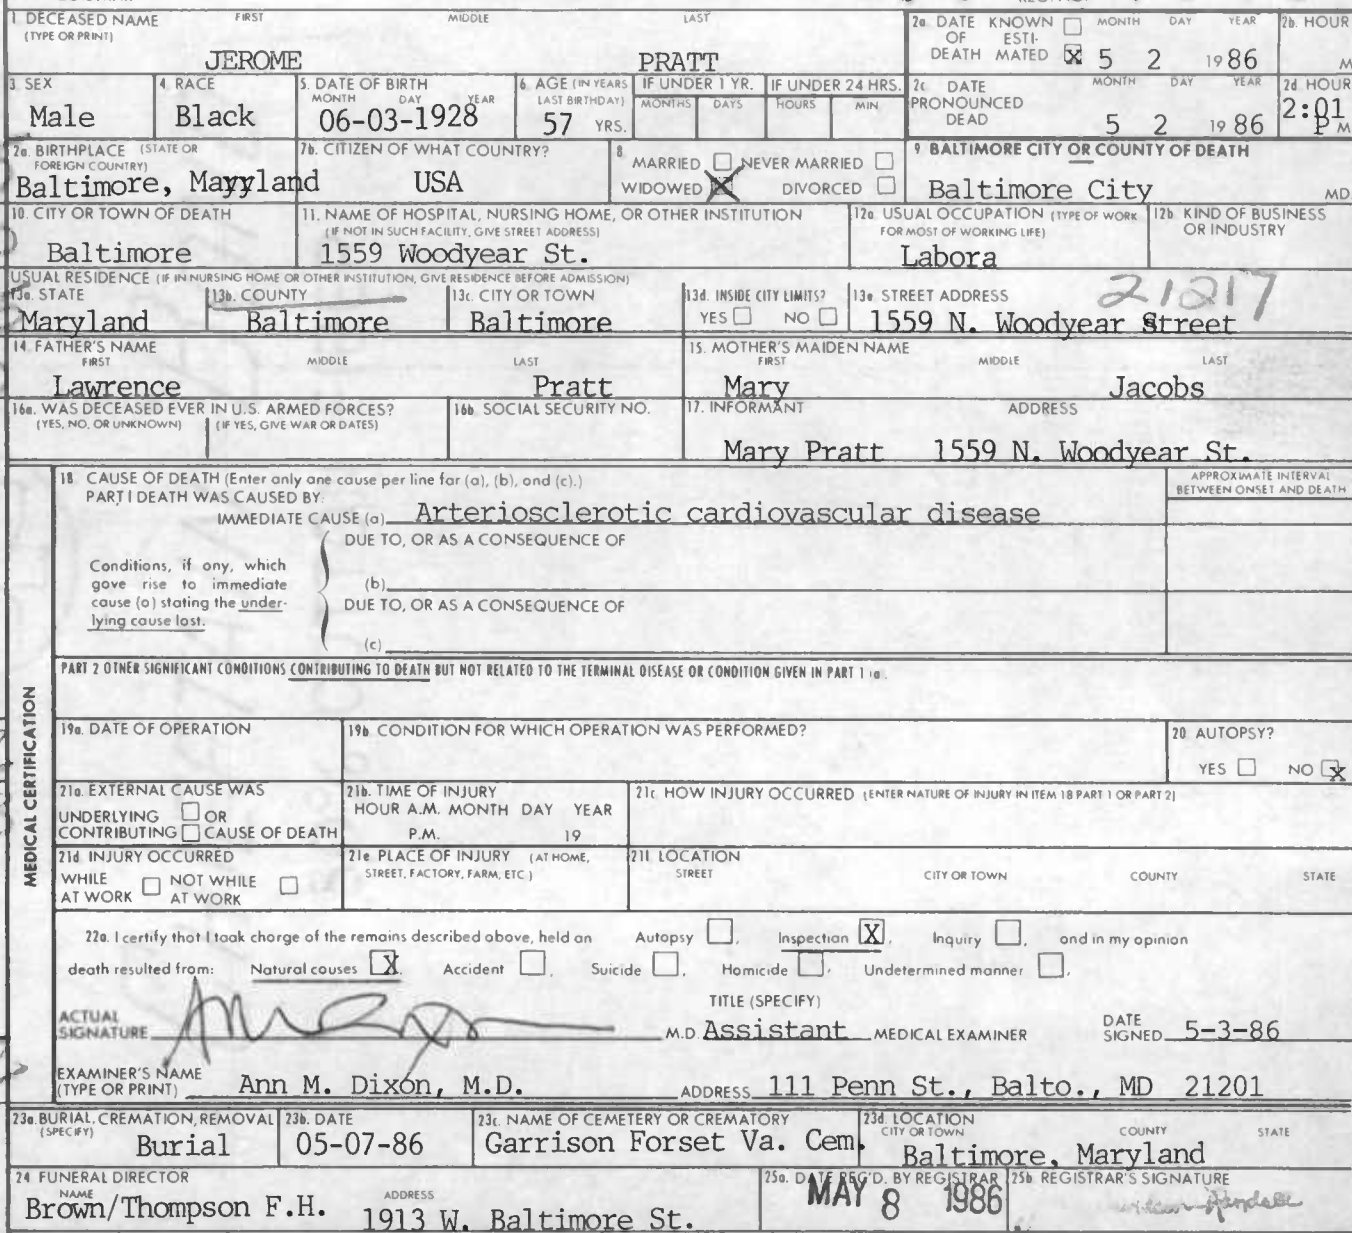 1 DECEASED NAME FIRST MIDDLE LAST
(TYPE OR PRINT)
JEROME PRATT
2a DATE KNOWN MONTH DAY YEAR
OF ESTI-
DEATH MATED X 5 2 1986
2b. HOUR
M
3 SEX
Male
4. RACE
Black
5. DATE OF BIRTH
MONTH DAY YEAR
06-03-1928
6. AGE (IN YEARS
LAST BIRTHDAY)
57 YRS.
IF UNDER 1 YR.
MONTHS DAYS
IF UNDER 24 HRS.
HOURS MIN
2c DATE MONTH DAY YEAR
PRONOUNCED
DEAD 5 2 1986
2d HOUR
2:01
P M
7a. BIRTHPLACE (STATE OR
FOREIGN COUNTRY)
Baltimore, Mayyland
7b. CITIZEN OF WHAT COUNTRY?
USA
8
MARRIED NEVER MARRIED
WIDOWED X DIVORCED
9 BALTIMORE CITY OR COUNTY OF DEATH
Baltimore City MD.
10. CITY OR TOWN OF DEATH
Baltimore
11. NAME OF HOSPITAL, NURSING HOME, OR OTHER INSTITUTION
(IF NOT IN SUCH FACILITY, GIVE STREET ADDRESS)
1559 Woodyear St.
12a USUAL OCCUPATION (TYPE OF WORK
FOR MOST OF WORKING LIFE)
Labora
12b. KIND OF BUSINESS
OR INDUSTRY
USUAL RESIDENCE (IF IN NURSING HOME OR OTHER INSTITUTION, GIVE RESIDENCE BEFORE ADMISSION)
13a. STATE
Maryland
13b. COUNTY
Baltimore
13c. CITY OR TOWN
Baltimore
13d. INSIDE CITY LIMITS?
YES NO
13e STREET ADDRESS 21217
1559 N. Woodyear Street
14. FATHER'S NAME
FIRST MIDDLE LAST
Lawrence Pratt
15. MOTHER'S MAIDEN NAME
FIRST MIDDLE LAST
Mary Jacobs
16a. WAS DECEASED EVER IN U.S. ARMED FORCES?
(YES, NO, OR UNKNOWN) (IF YES, GIVE WAR OR DATES)
16b. SOCIAL SECURITY NO.
17. INFORMANT ADDRESS
Mary Pratt 1559 N. Woodyear St.
MEDICAL CERTIFICATION
18 CAUSE OF DEATH (Enter only one cause per line for (a), (b), and (c).)
PART I DEATH WAS CAUSED BY:
IMMEDIATE CAUSE (a) Arteriosclerotic cardiovascular disease
APPROXIMATE INTERVAL
BETWEEN ONSET AND DEATH
DUE TO, OR AS A CONSEQUENCE OF
Conditions, if any, which
gave rise to immediate
cause (a) stating the under-
lying cause last.
(b)
DUE TO, OR AS A CONSEQUENCE OF
(c)
PART 2 OTHER SIGNIFICANT CONDITIONS CONTRIBUTING TO DEATH BUT NOT RELATED TO THE TERMINAL DISEASE OR CONDITION GIVEN IN PART 1 (a).
19a. DATE OF OPERATION
19b CONDITION FOR WHICH OPERATION WAS PERFORMED?
20 AUTOPSY?
YES NO X
21a. EXTERNAL CAUSE WAS
UNDERLYING OR
CONTRIBUTING CAUSE OF DEATH
21b. TIME OF INJURY
HOUR A.M. MONTH DAY YEAR
P.M. 19
21c HOW INJURY OCCURRED (ENTER NATURE OF INJURY IN ITEM 18 PART 1 OR PART 2)
21d INJURY OCCURRED
WHILE NOT WHILE
AT WORK AT WORK
21e PLACE OF INJURY (AT HOME,
STREET, FACTORY, FARM, ETC.)
21f LOCATION
STREET CITY OR TOWN COUNTY STATE
22a. I certify that I took charge of the remains described above, held an Autopsy , Inspection X , Inquiry , and in my opinion
death resulted from: Natural causes X , Accident , Suicide , Homicide , Undetermined manner ,
TITLE (SPECIFY)
ACTUAL
SIGNATURE M.D. Assistant MEDICAL EXAMINER DATE
SIGNED 5-3-86
EXAMINER'S NAME
(TYPE OR PRINT) Ann M. Dixon, M.D. ADDRESS 111 Penn St., Balto., MD 21201
23a. BURIAL, CREMATION, REMOVAL
(SPECIFY)
Burial
23b. DATE
05-07-86
23c. NAME OF CEMETERY OR CREMATORY
Garrison Forset Va. Cem.
23d. LOCATION
CITY OR TOWN COUNTY STATE
Baltimore, Maryland
24 FUNERAL DIRECTOR
NAME ADDRESS
Brown/Thompson F.H. 1913 W. Baltimore St.
25a. DATE REG'D. BY REGISTRAR
MAY 8 1986
25b REGISTRAR'S SIGNATURE